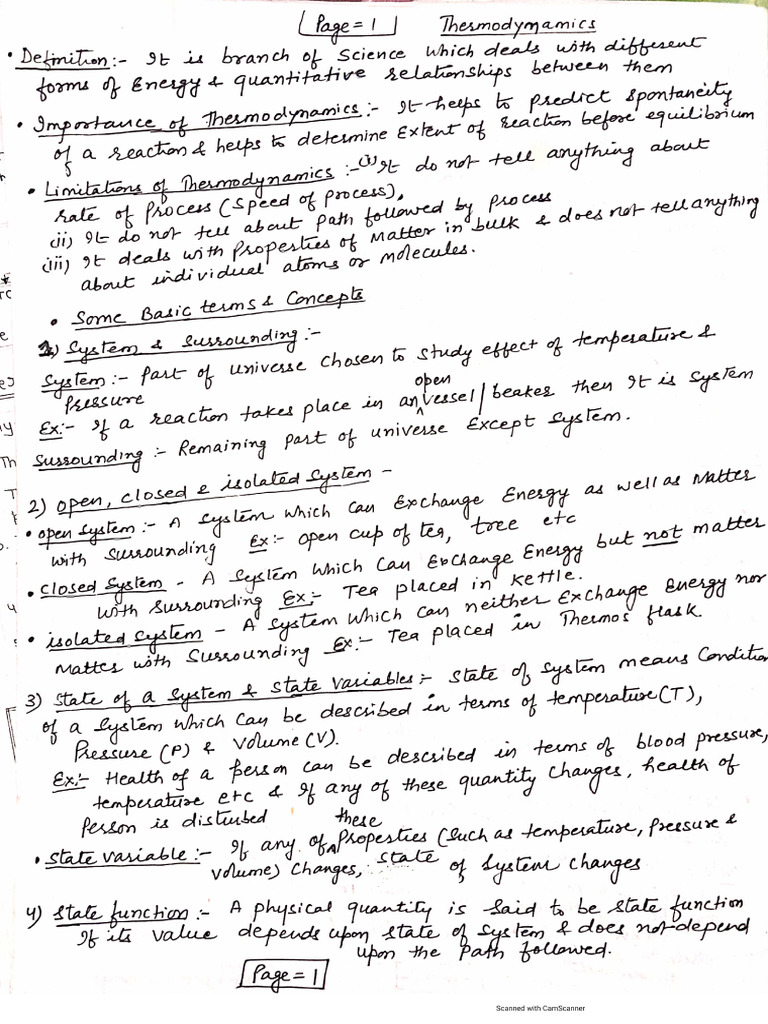 Page = 1 Thermodynamics
• Definition :- It is branch of Science which deals with different
forms of Energy & quantitative relationships between them
• Importance of Thermodynamics :- It helps to Predict Spontaneity
of a reaction & helps to determine Extent of reaction before equilibrium
• Limitations of Thermodynamics :- (i) It do not tell anything about
rate of Process (Speed of process),
(ii) It do not tell about Path followed by process
(iii) It deals with Properties of Matter in bulk & does not tell anything
about individual atoms or molecules.
• Some Basic terms & Concepts
1) System & Surrounding :-
System :- Part of universe chosen to study effect of temperature &
Pressure
open
Ex:- If a reaction takes place in an vessel/beaker then It is System
Surrounding :- Remaining part of universe Except System.
2) open, closed & isolated System -
• open System :- A System which can Exchange Energy as well as Matter
with Surrounding Ex:- open cup of tea, tree etc
• Closed System - A System which can Exchange Energy but not matter
with Surrounding Ex:- Tea placed in Kettle.
• isolated System - A System which can neither Exchange Energy nor
Matter with Surrounding Ex:- Tea placed in Thermos flask
3) State of a System & State Variables :- State of System means Condition
of a System which can be described in terms of temperature (T),
Pressure (P) & Volume (V).
Ex:- Health of a person can be described in terms of blood pressure,
temperature etc & If any of these quantity changes, health of
Person is disturbed
these
• State variable :- If any of Properties (Such as temperature, pressure &
volume) Changes, state of System changes
4) State function :- A physical quantity is said to be state function
If its value depends upon state of System & does not depend
upon the Path followed.
Page = 1
Scanned with CamScanner